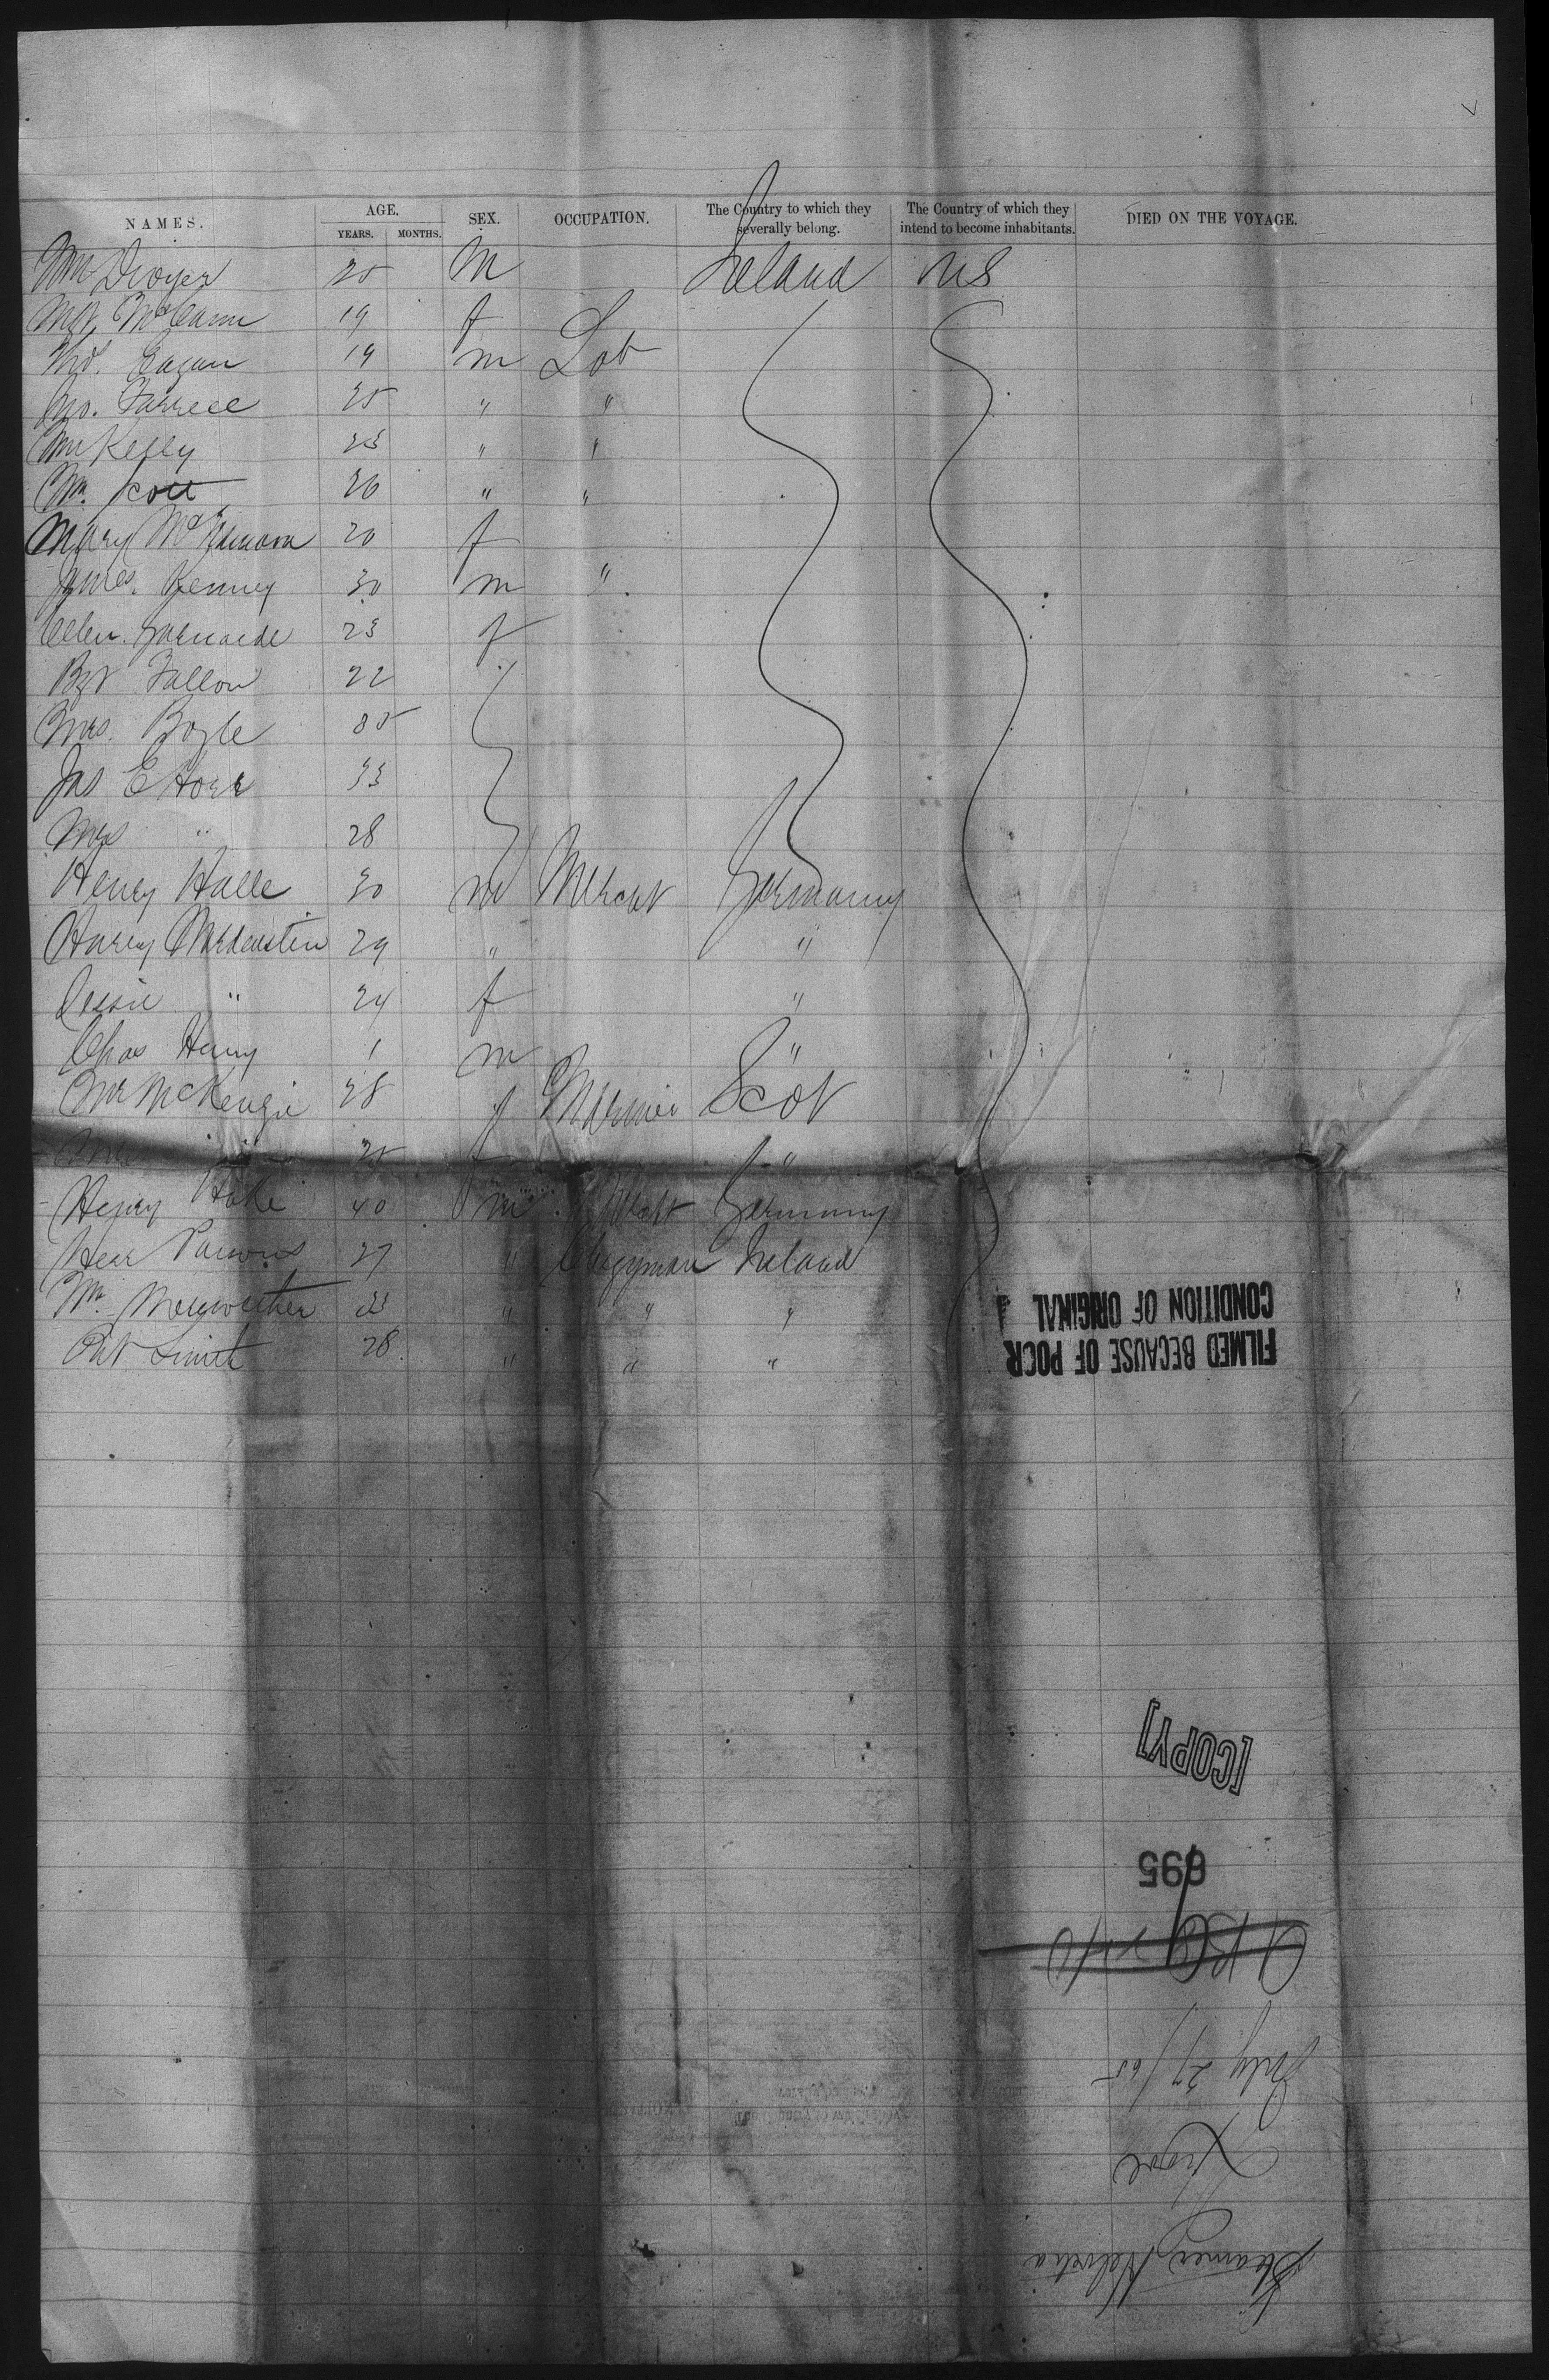 NAMES. AGE. YEARS. MONTHS. SEX. OCCUPATION. The Country to which they severally belong. The Country of which they intend to become inhabitants. DIED ON THE VOYAGE.
Wm Dwyer 25 M Ireland US
Mgt McCann 19 f
Thos. Eagan 19 m Lab
Jno. Farrell 25 " "
Wm Kelly 23 " "
Wm. Scott 26 " "
Mary McNamara 20 f
James. Kenney 30 m "
Ellen 23 f
Bgt Fallon 22
Mrs. Boyle 35
Jas E 33
Mrs " 28
Henry Halle 30 m Mercht Germany
Harry 29 " "
Jessie " 24 f "
Chas Henry 1 m "
Mr McKenzie 28 Scot
25 f "
Henry 40 m Mercht Germany
Parsons 27 " Clergyman Ireland
Mr. Merywether 33 " " "
Pat Smith 28 " " "
FILMED BECAUSE OF POOR
CONDITION OF ORIGINAL
[COPY]
695
July 27/65
Steamer Helvetia